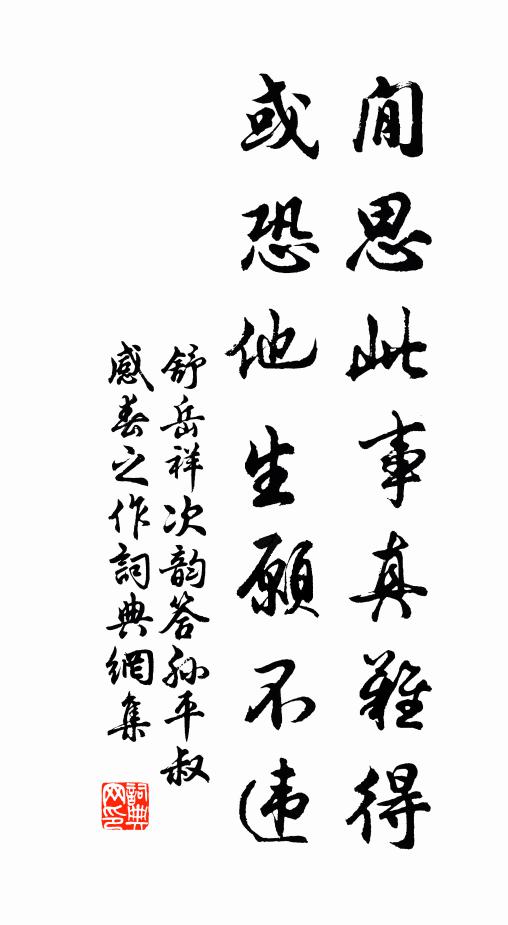 闲思此事真難得
或恐他生願不违
舒岳祥次韵答孙平叔
感春之作詞典網集
詞典网印